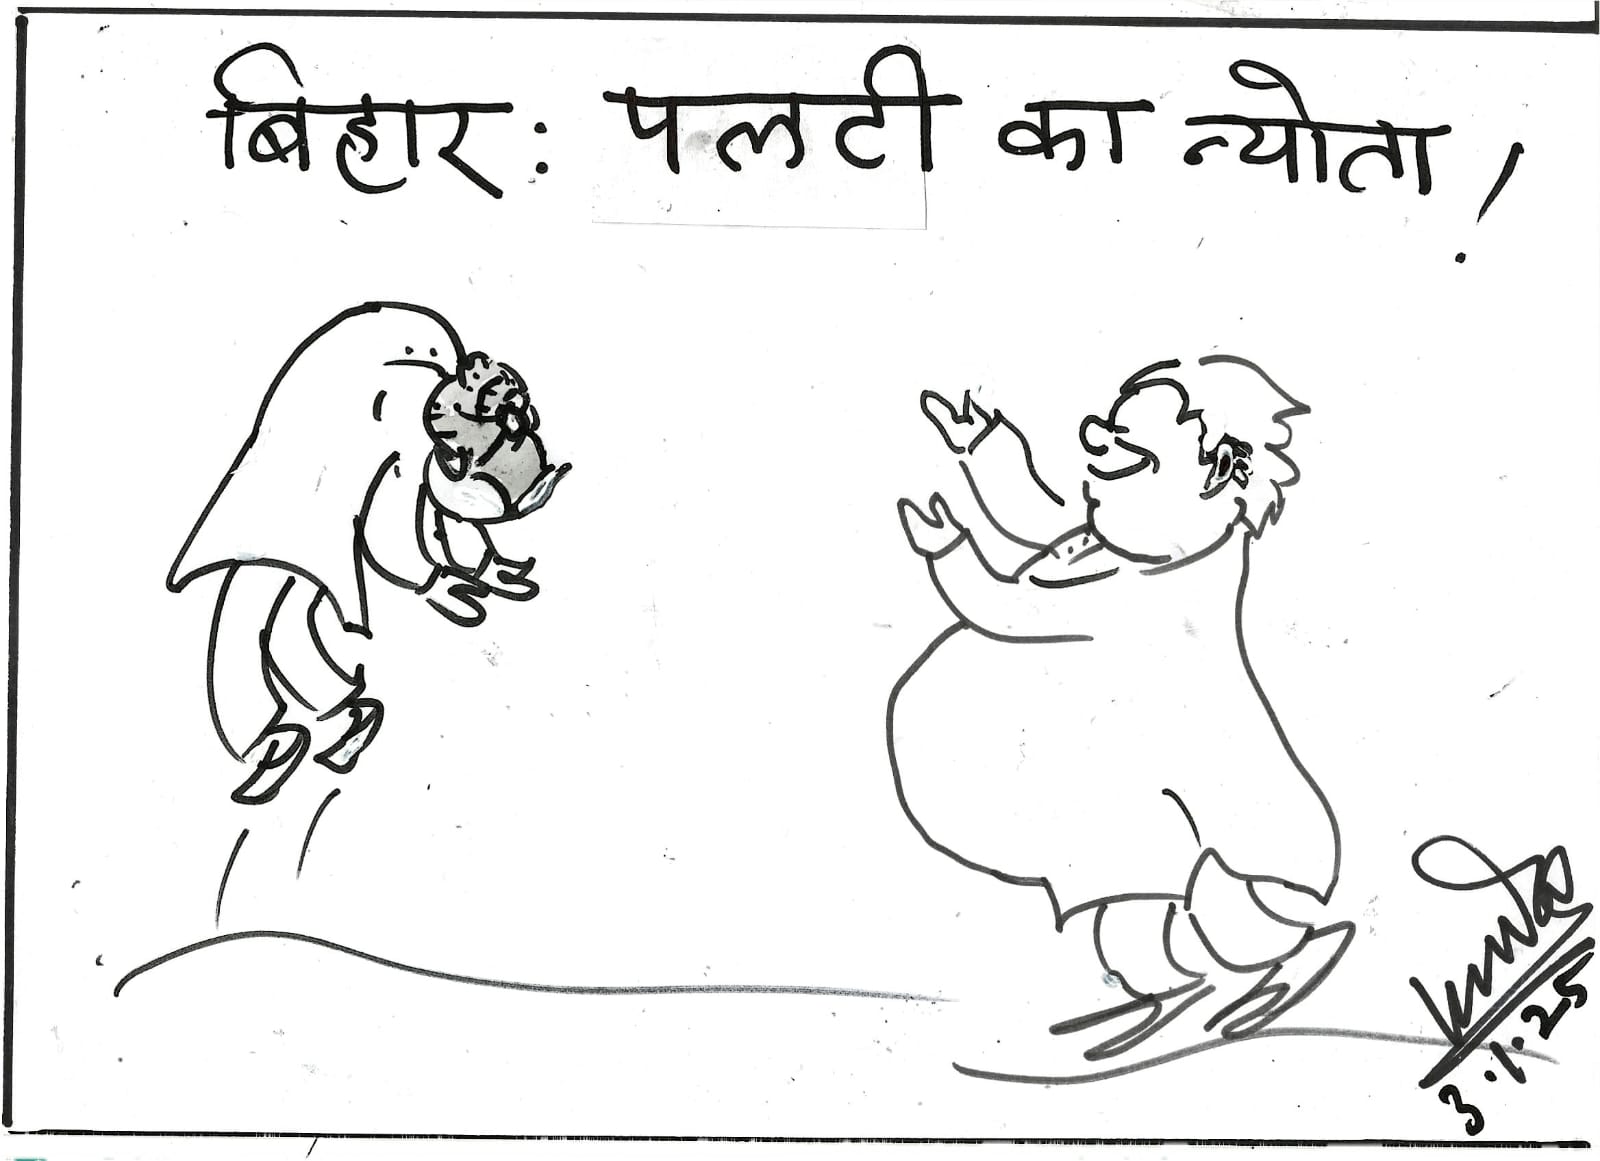 बिहार: पलटी का न्योता!
3.1.25